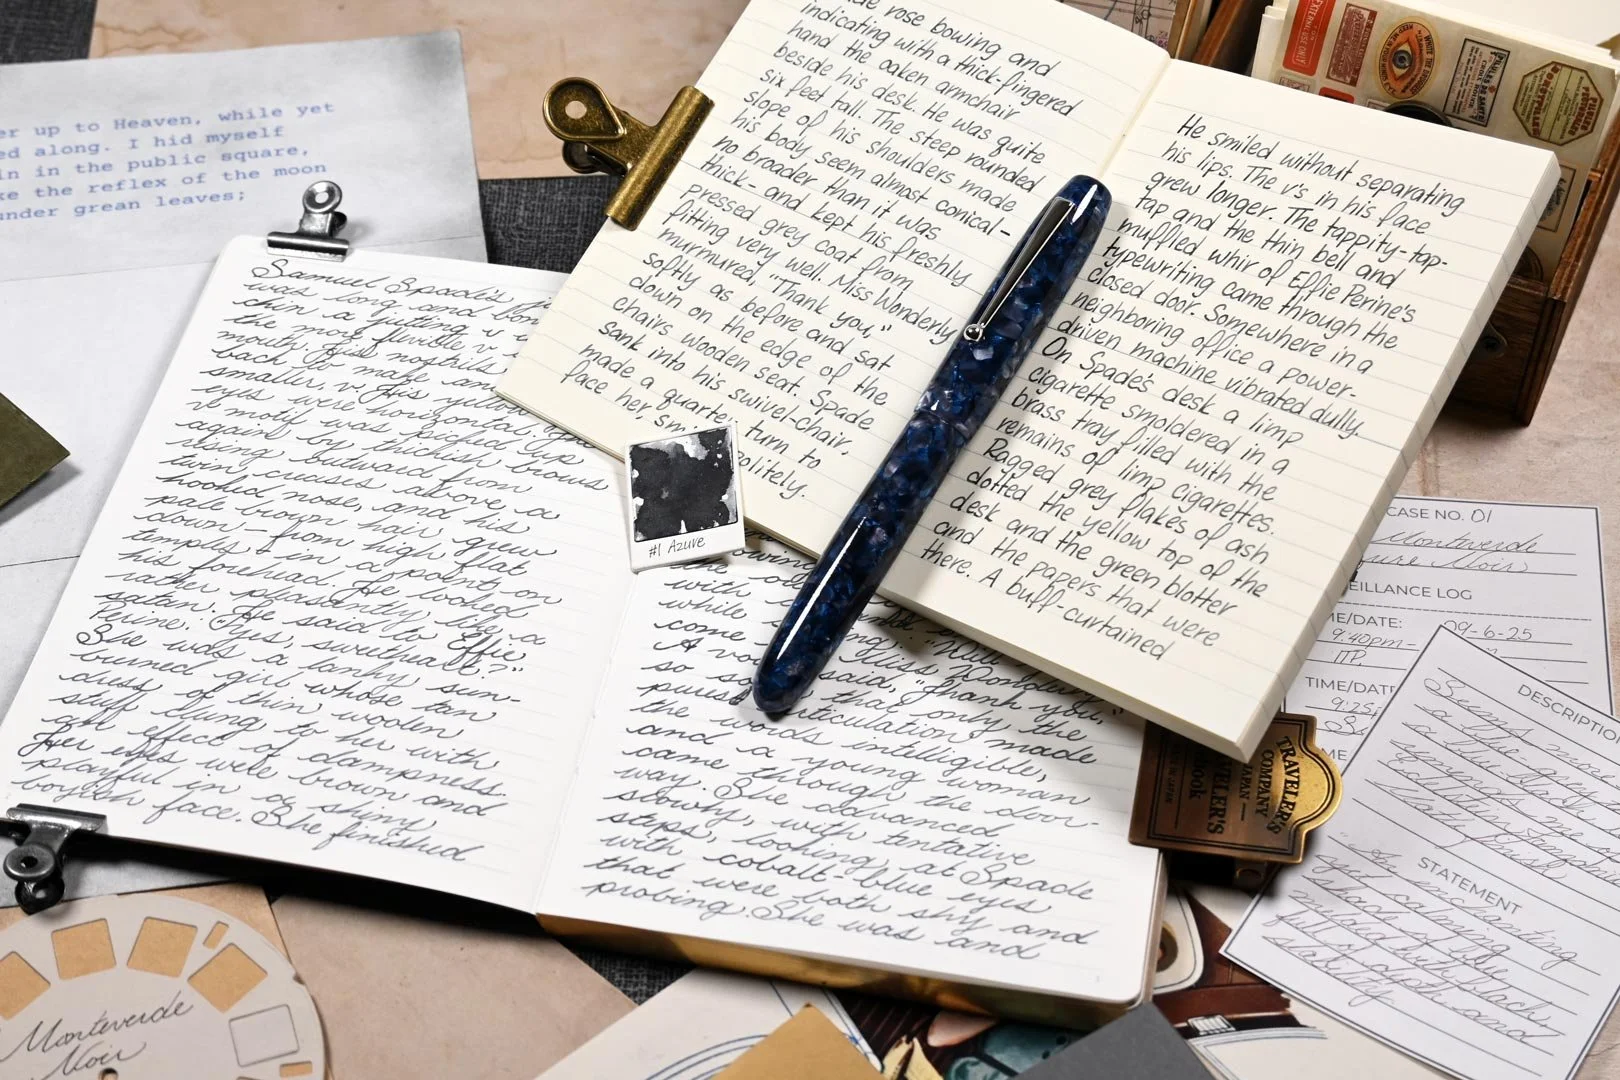 er up to Heaven, while yet
ed along. I hid myself
in in the public square,
ke the reflex of the moon
under grean leaves;
Samuel Spade's
was long and bony
chin a jutting v
the more flexible v
mouth. His nostrils
back to make an
smaller, v. His yellow
eyes were horizontal. The
v motif was picked up
again by thickish brows
rising outward from
twin creases above a
hooked nose, and his
pale brown hair grew
down - from high flat
temples - in a point on
his forehead. He looked
rather pleasantly like a
satan. He said to Effie
Perine: "Yes, sweetheart?"
She was a lanky sun-
burned girl whose tan
dress of thin woolen
stuff clung to her with
an effect of dampness.
Her eyes were brown and
playful in a shiny
boyish face. She finished
with
while
come
A vo said, "Thank you,"
so so that only the
pures articulation made
the words intelligible,
and a young woman
came through the door-
way. She advanced
slowly, with tentative
steps, looking at Spade
with cobalt-blue eyes
that were both shy and
probing. She was and
de rose bowing and
indicating with a thick-fingered
hand the oaken armchair
beside his desk. He was quite
six feet tall. The steep rounded
slope of his shoulders made
his body seem almost conical-
no broader than it was
thick- and kept his freshly
pressed grey coat from
fitting very well. Miss Wonderly
murmured, "Thank you,"
softly as before and sat
down on the edge of the
chairs wooden seat. Spade
sank into his swivel-chair,
made a quarter turn to
face her, smi olitely.
He smiled without separating
his lips. The v's in his face
grew longer. The tappity-tap-
tap and the thin bell and
muffled whir of Effie Perine's
typewriting came through the
closed door. Somewhere in a
neighboring office a power-
driven machine vibrated dully.
On Spade's desk a limp
cigarette smoldered in a
brass tray filled with the
remains of limp cigarettes.
Ragged grey flakes of ash
dotted the yellow top of the
desk and the green blotter
and the papers that were
there. A buff-curtained
#1 Azure
EXTERNAL USE ONLY
CASE NO. 01
Monteverde
ure Noir
EILLANCE LOG
ME/DATE: 09-6-25
9:40pm-
ITP.
TIME/DAT
9:25
DESCRIPTION
Seems more
a blue
STATEMENT
"An enchanting
yet calming
shade of
full of depth and
TRAVELER'S
COMPANY
JAPAN
Monteverde
Noir